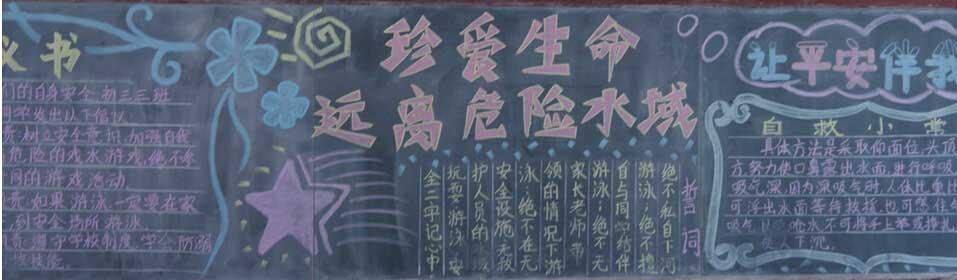 议书
们的自身安全,初三三班
同学发出以下倡议
树立安全意识,加强自我
危险的戏水游戏,绝不参
的游戏活动
如果游泳一定要在家
到安全场所游泳
遵守学校制度,学会防溺
技能。
珍爱生命
远离危险水域
誓词
绝不私自下河
游泳;绝不擅
自与同学结伴
游泳;绝不无
家长老师带
领的情况下游
泳;绝不在无
安全设施无救
护人员的水域
玩耍游泳安
全二字记心中
让平安伴我
自救小常
具体方法是采取仰面位,头顶
方,努力使口鼻露出水面,进行呼吸
吸气深,因为深吸气时,人体比重比
可浮出水面等待救援,也可憋住
吸气以免呛水,不可将手上举或挣扎
使人下沉。